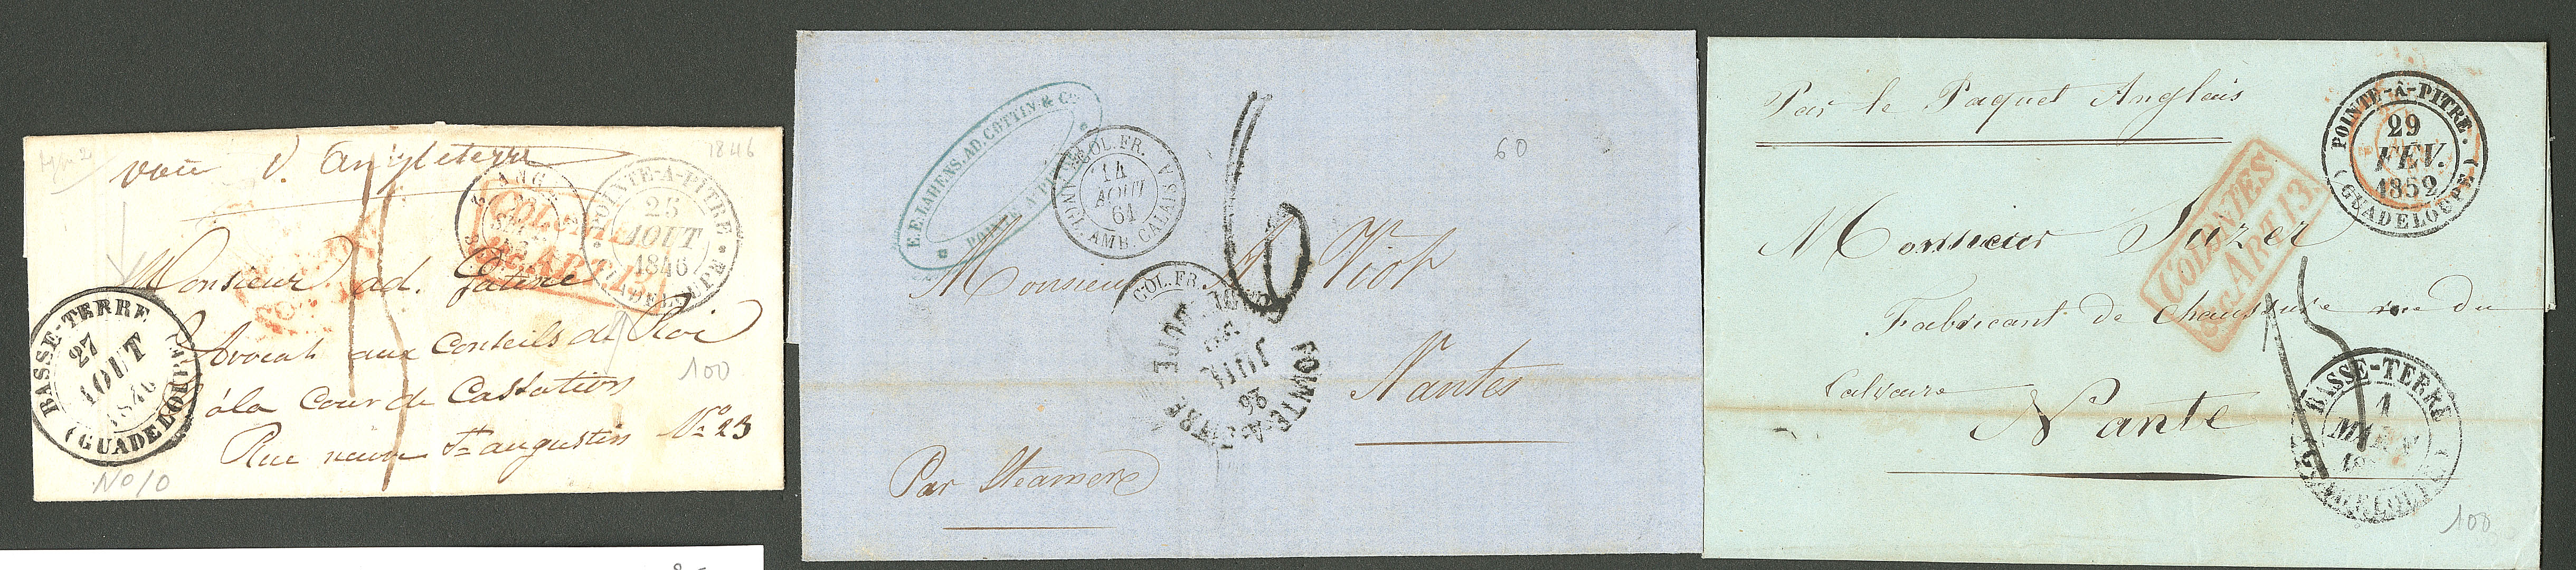 voie d. Angleterre
1846
ANGL.
COL. &c. ART.
POINTE-A-PITRE
25
AOUT
1846
Monsieur ad. Gatine
Avocat aux Conseils du Roi
à la Cour de Cassation
Rue neuve St augustin No 23
100
BASSE-TERRE
27
AOUT
1846
(GUADELOUPE)
No 10
E.E. LAHENS. AD. COTTIN & Co
POINTE A PITRE
COL. FR.
14
AOUT
61
ANGL. AMB. CALAIS A
6
60
Monsieur Viot
Nantes
COL. FR.
POINTE-A-PITRE
28
JUIL
Par Steamer
Par le Paquet Anglais
POINTE-À-PITRE.
29
FEV.
1852
(GUADELOUPE)
COLONIES
&c. ART. 13.
Monsieur Suzer
Fabricant de Chaussure rue du
Calvaire
Nante
15
BASSE-TERRE
1
MARS
GUADELOUPE
100